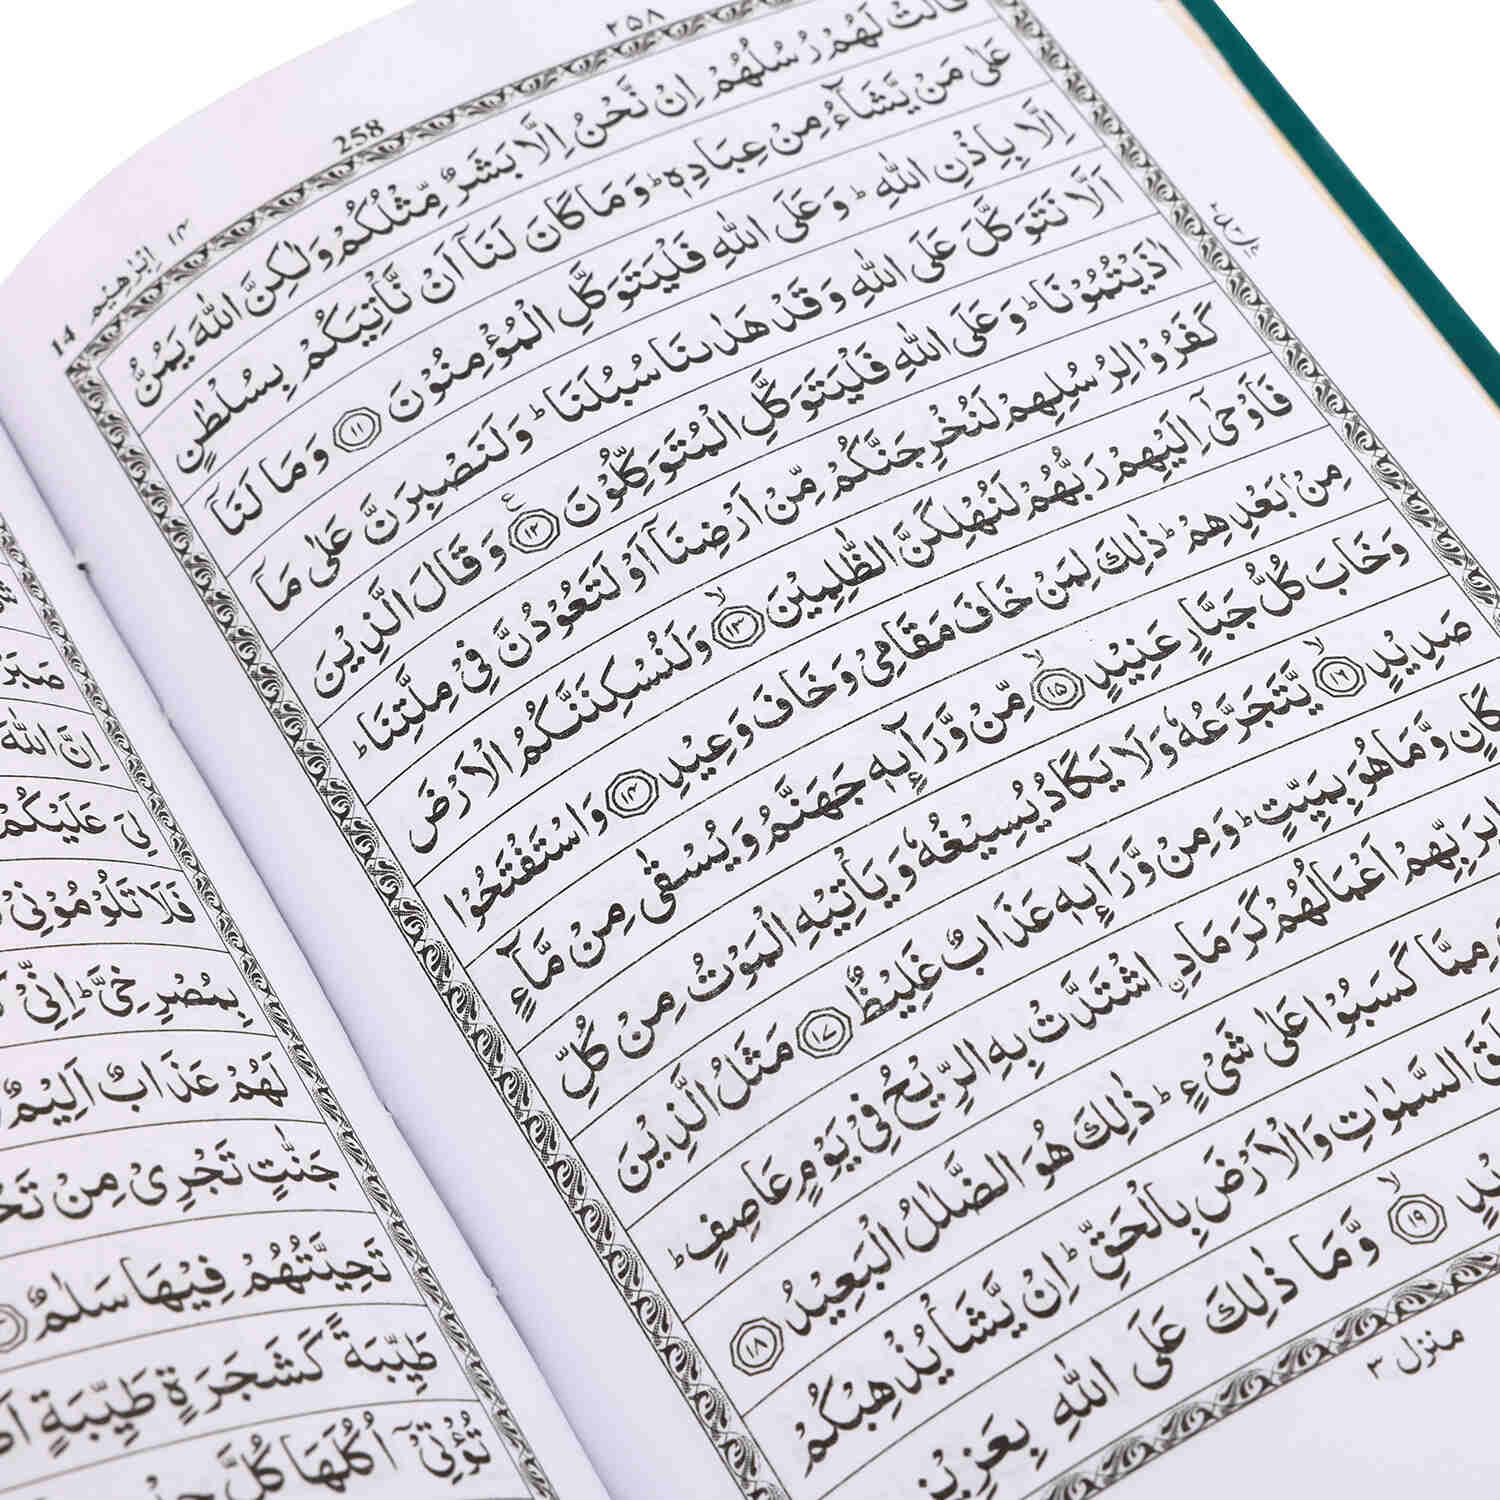 ٢٥٨
258
ابرٰهيم ١٤
14
قَالَتْ لَهُمْ رُسُلُهُمْ اِنْ نَّحْنُ اِلَّا بَشَرٌ مِّثْلُكُمْ وَلٰكِنَّ اللّٰهَ يَمُنُّ
عَلٰى مَنْ يَّشَآءُ مِنْ عِبَادِهٖ ؕ وَمَا كَانَ لَنَآ اَنْ نَّاْتِيَكُمْ بِسُلْطٰنٍ
اِلَّا بِاِذْنِ اللّٰهِ ؕ وَعَلَى اللّٰهِ فَلْيَتَوَكَّلِ الْمُؤْمِنُوْنَ ﴿١١﴾ وَمَا لَنَآ
اَلَّا نَتَوَكَّلَ عَلَى اللّٰهِ وَقَدْ هَدٰىنَا سُبُلَنَا ؕ وَلَنَصْبِرَنَّ عَلٰى مَآ
اٰذَيْتُمُوْنَا ؕ وَعَلَى اللّٰهِ فَلْيَتَوَكَّلِ الْمُتَوَكِّلُوْنَ ﴿١٢﴾ۧ وَقَالَ الَّذِيْنَ
كَفَرُوْا لِرُسُلِهِمْ لَنُخْرِجَنَّكُمْ مِّنْ اَرْضِنَآ اَوْ لَتَعُوْدُنَّ فِيْ مِلَّتِنَا ؕ
فَاَوْحٰٓى اِلَيْهِمْ رَبُّهُمْ لَنُهْلِكَنَّ الظّٰلِمِيْنَ ﴿١٣﴾ۙ وَلَنُسْكِنَنَّكُمُ الْاَرْضَ
مِنْۢ بَعْدِهِمْ ؕ ذٰلِكَ لِمَنْ خَافَ مَقَامِيْ وَخَافَ وَعِيْدِ ﴿١٤﴾ وَاسْتَفْتَحُوْا
وَخَابَ كُلُّ جَبَّارٍ عَنِيْدٍ ﴿١٥﴾ۙ مِّنْ وَّرَآئِهٖ جَهَنَّمُ وَيُسْقٰى مِنْ مَّآءٍ
صَدِيْدٍ ﴿١٦﴾ۙ يَّتَجَرَّعُهٗ وَلَا يَكَادُ يُسِيْغُهٗ وَيَاْتِيْهِ الْمَوْتُ مِنْ كُلِّ
مَكَانٍ وَّمَا هُوَ بِمَيِّتٍ ؕ وَمِنْ وَّرَآئِهٖ عَذَابٌ غَلِيْظٌ ﴿١٧﴾ مَثَلُ الَّذِيْنَ
بِرَبِّهِمْ اَعْمَالُهُمْ كَرَمَادِ ِۨاشْتَدَّتْ بِهِ الرِّيْحُ فِيْ يَوْمٍ عَاصِفٍ ؕ
مِمَّا كَسَبُوْا عَلٰى شَيْءٍ ؕ ذٰلِكَ هُوَ الضَّلٰلُ الْبَعِيْدُ ﴿١٨﴾
السَّمٰوٰتِ وَالْاَرْضَ بِالْحَقِّ ؕ اِنْ يَّشَاْ يُذْهِبْكُمْ
﴿١٩﴾ۙ وَّمَا ذٰلِكَ عَلَى اللّٰهِ بِعَزِيْزٍ
منزل ٣
صَبَرْ
اِنَّ اللّٰهَ
لِيَ عَلَيْكُمْ
فَلَا تَلُوْمُوْنِيْ
بِمُصْرِخِيَّ ؕ اِنِّيْ
لَهُمْ عَذَابٌ اَلِيْمٌ
جَنّٰتٍ تَجْرِيْ مِنْ
تَحِيَّتُهُمْ فِيْهَا سَلٰمٌ
طَيِّبَةً كَشَجَرَةٍ طَيِّبَةٍ
تُؤْتِيْٓ اُكُلَهَا كُلَّ